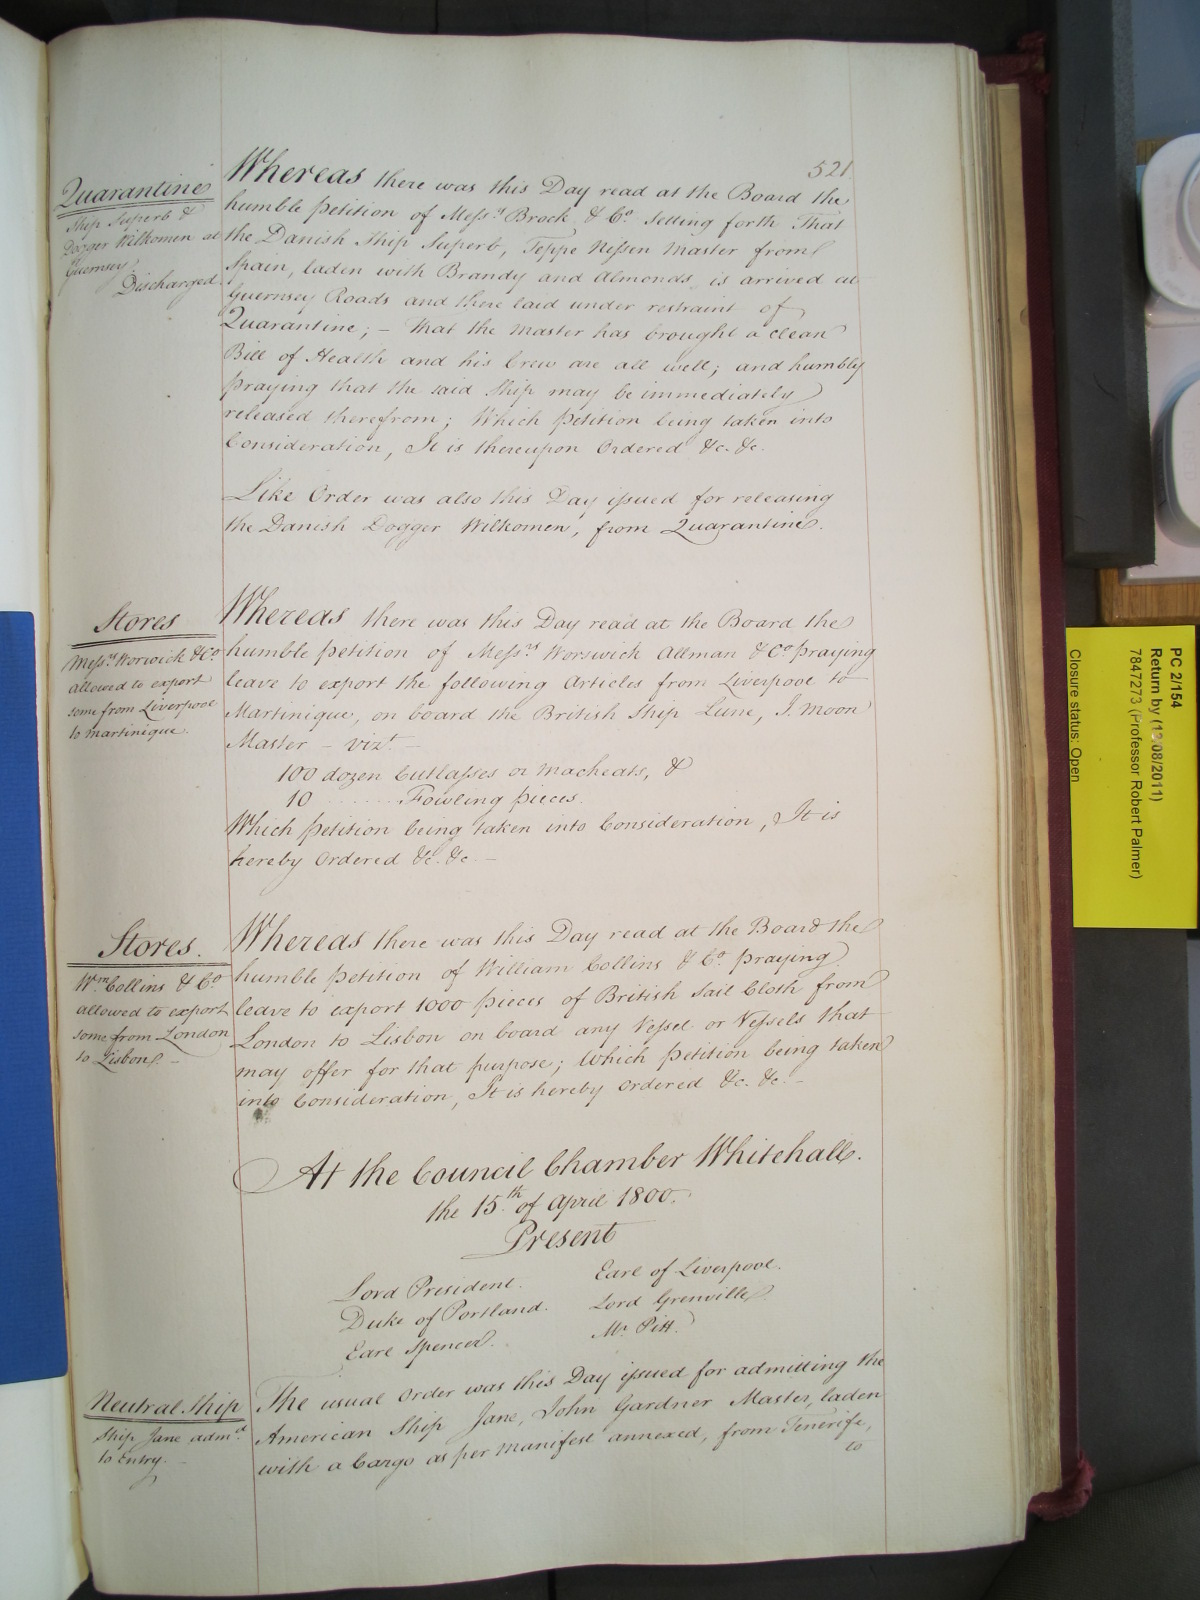 521
Quarantine
Ship Superb &
Dogger Wilkomen at
Guernsey
Discharged.
Whereas there was this Day read at the Board the
humble Petition of Mess.rs Brock & Co. setting forth That
the Danish Ship Superb, Teppe Nissen Master from
Spain, laden with Brandy and Almonds, is arrived at
Guernsey Roads and there laid under restraint of
Quarantine; – That the Master has brought a clean
Bill of Health and his Crew are all well; and humbly
praying that the said Ship may be immediately
released therefrom; Which Petition being taken into
Consideration, It is thereupon Ordered &c. &c.
Like Order was also this Day issued for releasing
the Danish Dogger Wilkomen, from Quarantine.
Stores
Mess.rs Worwick & Co.
allowed to export
some from Liverpool
to Martinique.
Whereas there was this Day read at the Board the
humble Petition of Mess.rs Worswick Allman & Co. praying
leave to export the following Articles from Liverpool to
Martinique, on board the British Ship Lune, J. Moon
Master – vizt. –
100 dozen Cutlasses or Macheats, &
10 ........ Fowling pieces.
Which Petition being taken into Consideration, It is
hereby Ordered &c. &c. –
Stores.
Wm. Collins & Co.
allowed to export
some from London
to Lisbon. –
Whereas there was this Day read at the Board the
humble Petition of William Collins & Co. praying
leave to export 1000 pieces of British Sail Cloth from
London to Lisbon on board any Vessel or Vessels that
may offer for that purpose; Which Petition being taken
into Consideration, It is hereby Ordered &c. &c. –
At the Council Chamber Whitehall.
the 15th of April 1800.
Present
Lord President. Earl of Liverpool.
Duke of Portland. Lord Grenville
Earl Spencer. Mr. Pitt.
Neutral Ship
Ship Jane adm.d
to Entry.
The usual Order was this Day issued for admitting the
American Ship Jane, John Gardner Master, laden
with a Cargo as per Manifest annexed, from Tenerife,
to
PC 2/154
Return by (12/08/2011)
7847273 (Professor Robert Palmer)
Closure status: Open